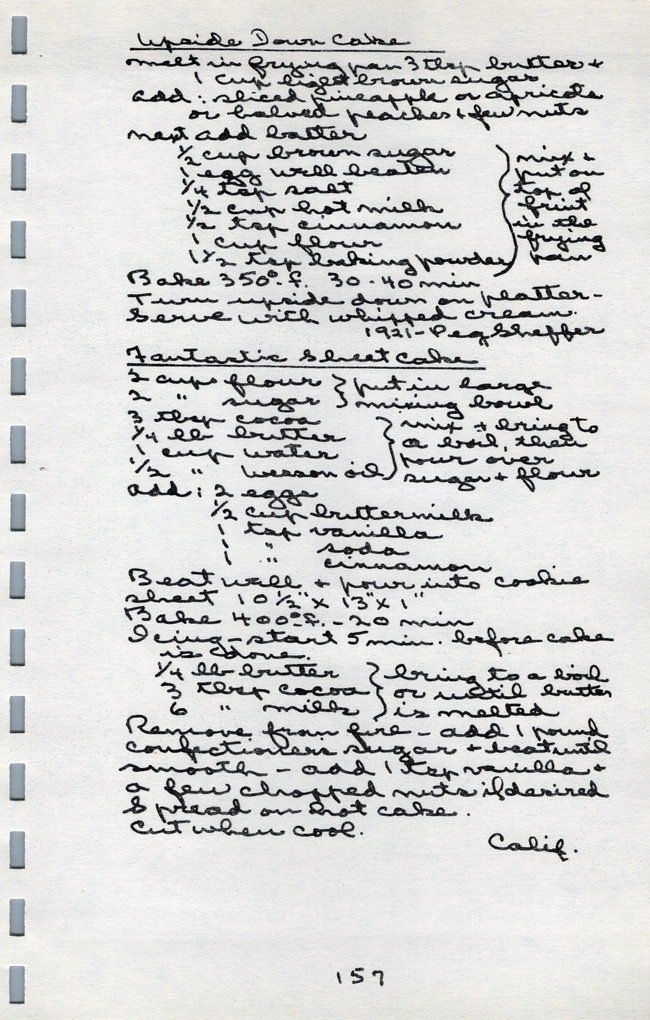 Upside Down Cake
melt in frying pan 3 tbsp butter +
1 cup light brown sugar
add: sliced pineapple or apricots
or halved peaches + few nuts
next add batter
1/2 cup brown sugar
1 egg well beaten
1/4 tsp salt
1/2 cup hot milk
1/2 tsp cinnamon
1 cup flour
1 1/2 tsp baking powder
mix +
put on
top of
fruit
in the
frying
pan
Bake 350° f. 30-40 min
Turn upside down on platter-
Serve with whipped cream.
1921- Peg Sheffer
Fantastic Sheet Cake
2 cups flour } put in large
2 " sugar } mixing bowl
3 tbsp cocoa } mix + bring to
1/4 lb butter } a boil, then
1 cup water } pour over
1/2 " wesson oil } sugar + flour
add: 2 eggs
1/2 cup buttermilk
1 tsp vanilla
1 " soda
1 " cinnamon
Beat well + pour into cookie
sheet 10 1/2" x 13" x 1"
Bake 400° f. - 20 min
Icing - start 5 min. before cake
is done.
1/4 lb butter } bring to a boil
3 tbsp cocoa } or until butter
6 " milk } is melted
Remove from fire - add 1 pound
confectioners sugar + beat until
smooth - add 1 tsp vanilla +
a few chopped nuts if desired
Spread on hot cake.
Cut when cool.
Calif.
157